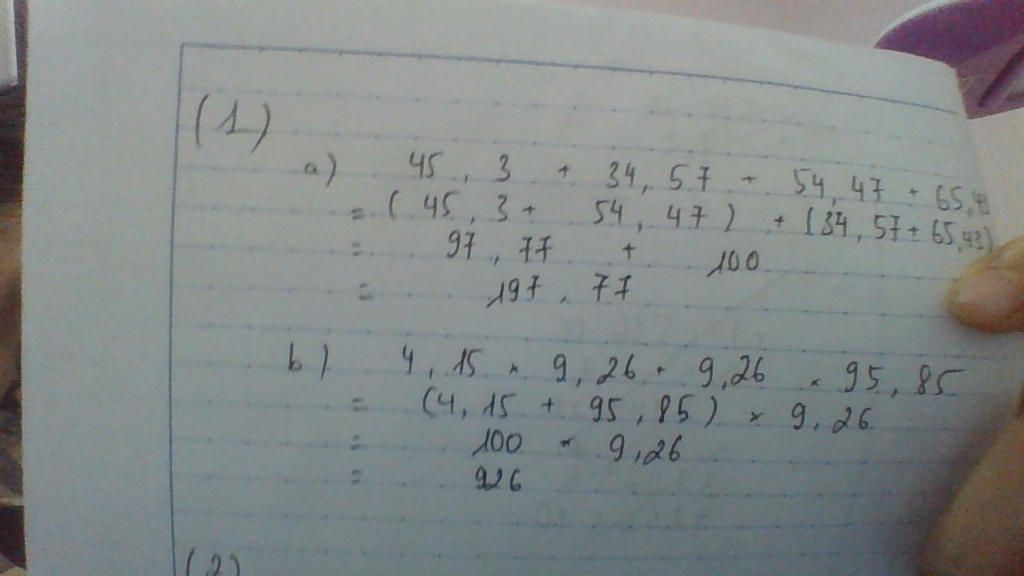 (1)
a) 45,3 + 34,57 + 54,47 + 65,43
= (45,3 + 54,47) + (34,57 + 65,43)
= 97,77 + 100
= 197,77
b) 4,15 × 9,26 + 9,26 × 95,85
= (4,15 + 95,85) × 9,26
= 100 × 9,26
= 926
(2)